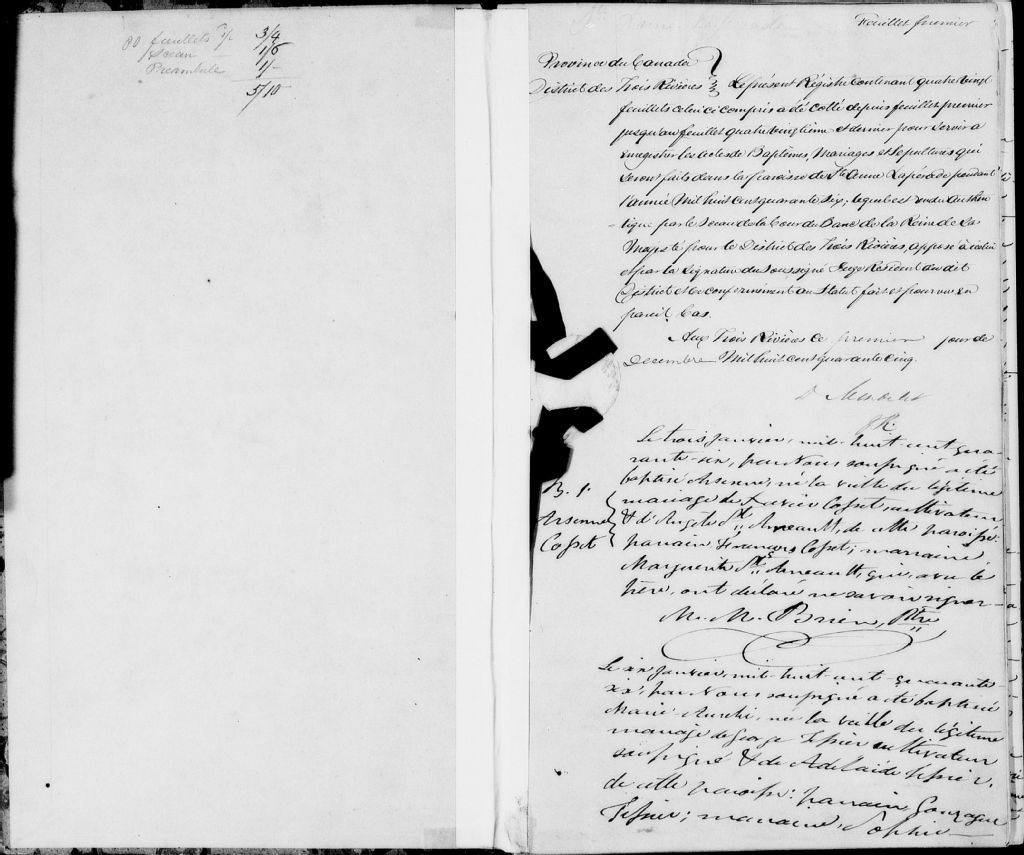 80 feuillets 3/4
Sceau 1/6
Préambule 1/-
5/10
Feuillet premier
Province du Canada
District des Trois Rivières Le présent Régistre contenant quatre vingt
feuillets celui ci compris a été cotté depuis feuillet premier
jusqu'au feuillet quatrevingtième et dernier pour servir à
enregistrer les Actes de Baptêmes, Mariages et Sepultures qui
seront faits dans la paroisse de Ste Anne Lapérade pendant
l'année Mil huit cent quarante six; lequel est rendu authen
tique par le Sceau de la Cour du Banc de la Reine de Sa
Majesté pour le District des Trois Rivières, apposé à icelui
et par la Signature du Soussigné Juge Résident du dit
District et ce conformément au Statut fait et pourvu en
pareil Cas.
Aux Trois Rivières ce premier jour de
Decembre Mil huit cent quarante cinq.
B. 1.
Arsenne
Cosset
Le trois Janvier, mil-huit-cent qua-
rante-six, par Nous soussigné a été
baptisé Arsenne, né la veille du légitime
mariage de Xavier Cosset, cultivateur
& d'Angèle St. Arneault, de cette paroisse:
parrain François Cosset; marraine
Marguerite St. Arneault, qui, avec le
père, ont déclaré ne savoir signer-
M. M. Brien, Ptre
Le six Janvier, mil-huit-cent-quarante-
six, par Nous soussigné a été baptisée
Marie-Aurélie, née la veille du légitime
mariage de George Tessier cultivateur
soussigné & de Adelaïde Tessier,
de cette paroisse: parrain Gonzague
Tessier; marraine, Sophie